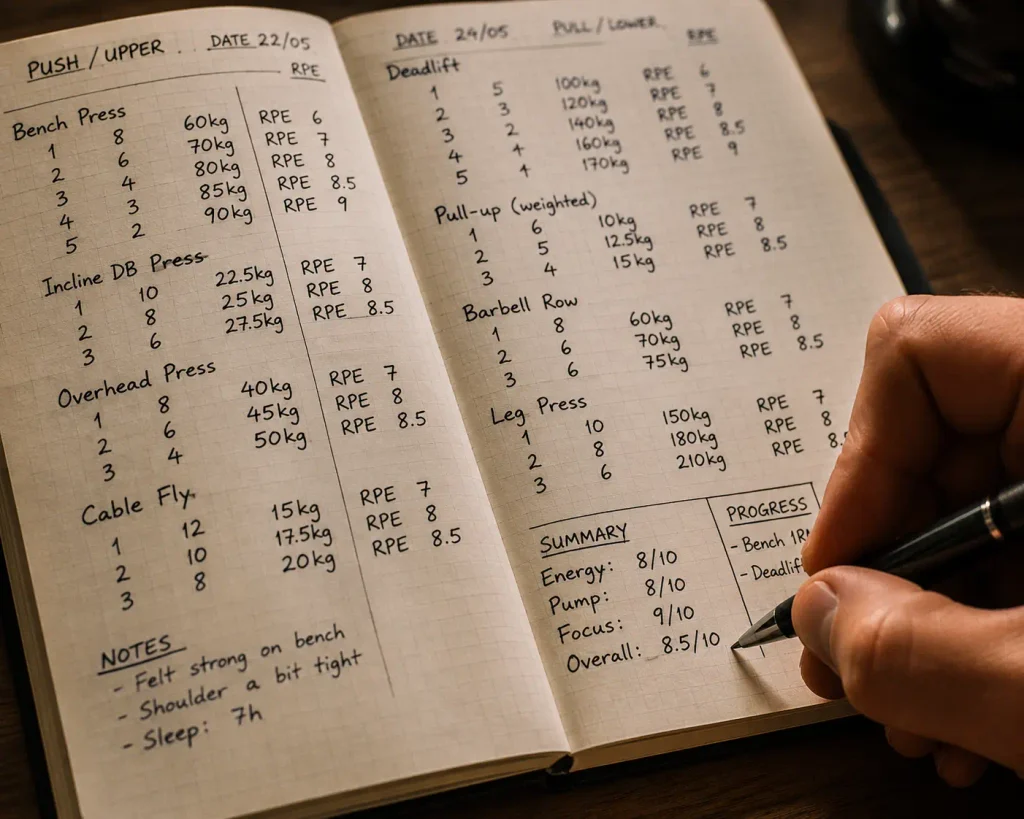 PUSH / UPPER . DATE 22/05
RPE
Bench Press
1 8 60kg RPE 6
2 6 70kg RPE 7
3 4 80kg RPE 8
4 3 85kg RPE 8.5
5 2 90kg RPE 9
Incline DB Press
1 10 22.5kg RPE 7
2 8 25kg RPE 8
3 6 27.5kg RPE 8.5
Overhead Press
1 8 40kg RPE 7
2 6 45kg RPE 8
3 4 50kg RPE 8.5
Cable Fly
1 12 15kg RPE 7
2 10 17.5kg RPE 8
3 8 20kg RPE 8.5
NOTES
- Felt strong on bench
- Shoulder a bit tight
- Sleep: 7h
DATE 24/05 PULL / LOWER
RPE
Deadlift
1 5 100kg RPE 6
2 3 120kg RPE 7
3 2 140kg RPE 8
4 4 160kg RPE 8.5
5 4 170kg RPE 9
Pull-up (weighted)
1 6 10kg RPE 7
2 5 12.5kg RPE 8
3 4 15kg RPE 8.5
Barbell Row
1 8 60kg RPE 7
2 6 70kg RPE 8
3 6 75kg RPE 8.5
Leg Press
1 10 150kg RPE 7
2 8 180kg RPE 8
3 6 210kg RPE
SUMMARY
Energy: 8/10
Pump: 8/10
Focus: 9/10
Overall: 8.5/10
PROGRESS
- Bench
-